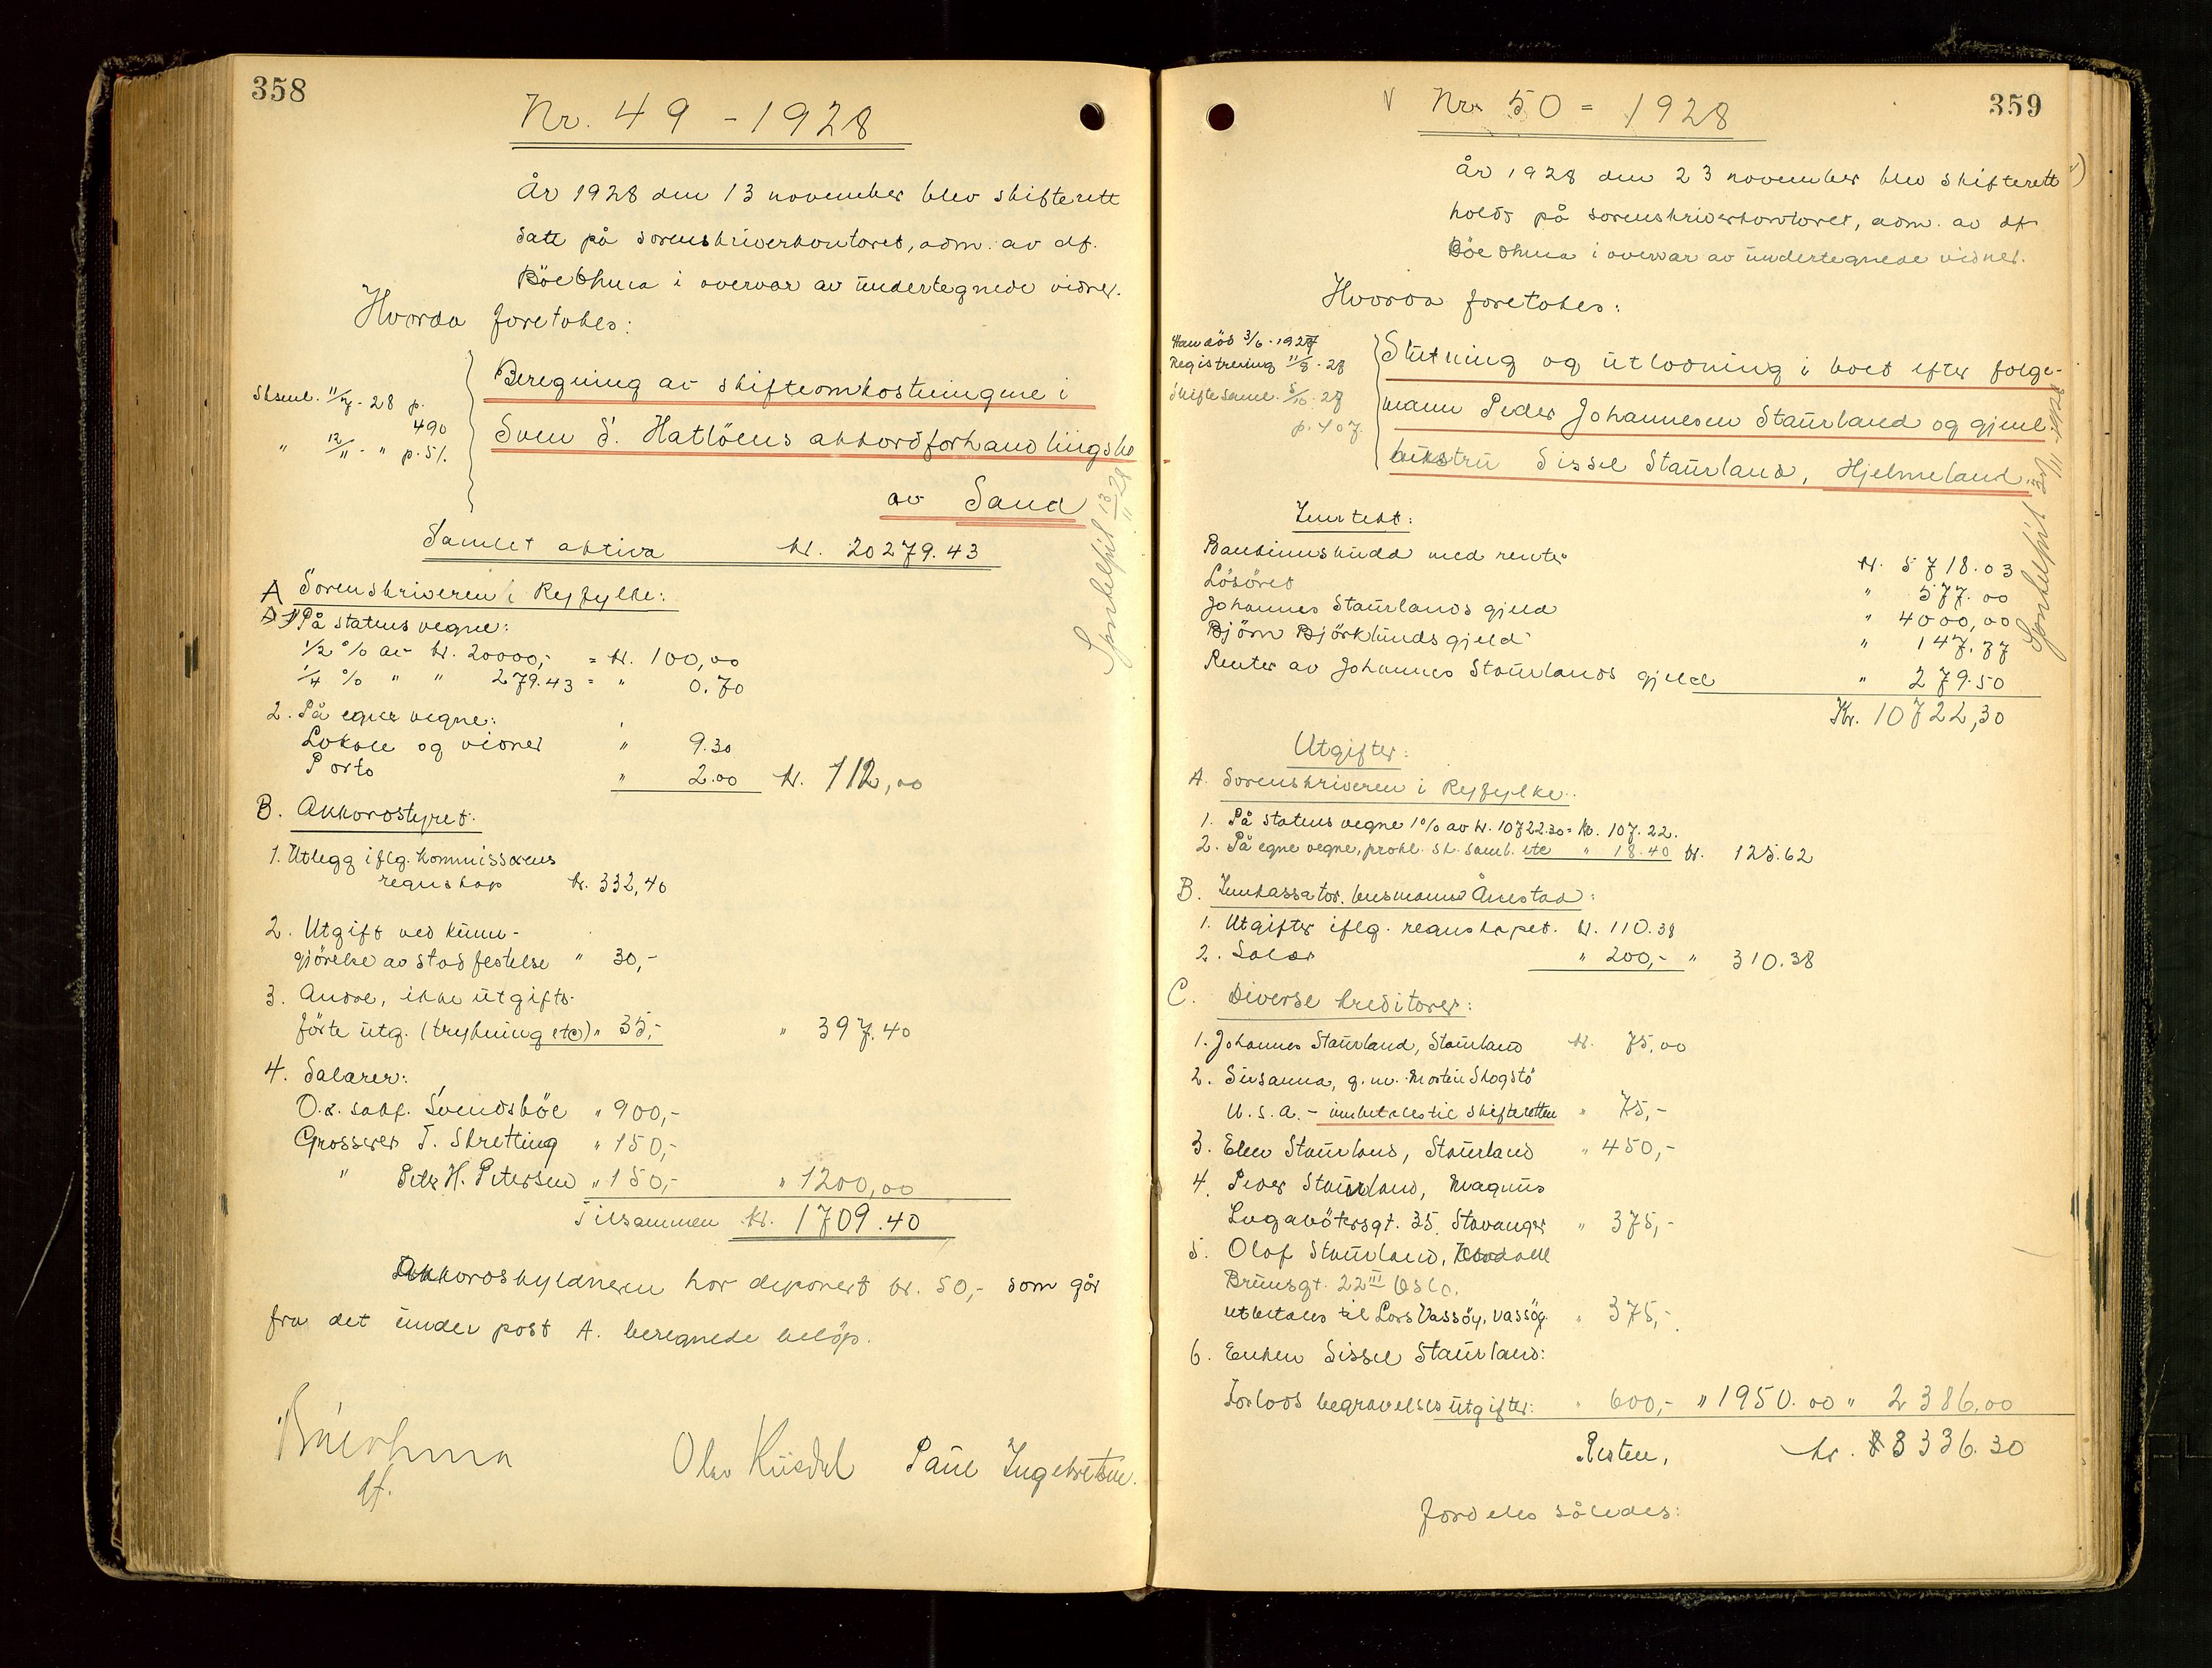 358
Nr. 49 - 1928
År 1928 den 13 november blev skifterett
satt på sorenskriverkontoret, adm. av df.
i overvær av undertegnede vidner.
Hvorda foretokes:
Sksml. 11/7 - 28 p.
490
" 12/11 - " p. 51.
Beregning av skifteomkostningene i
Sven S. Hatlöens akkordforhandlingsbo
av Sand
Samlet aktiva kr. 20279.43
A Sorenskriveren i Ryfylke:
1 På statens vegne:
1/2 % av kr. 20000,- = kr. 100,00
1/4 % " " 279.43 = " 0.70
2. På egne vegne:
Lokale og vidner " 9.30
Porto " 2.00 kr. 112,00
B. Akkordstyret.
1. Utlegg iflg. kommissærens
regnskap kr. 332,40
2. Utgift ved kunn-
gjörelse av stadfestelse " 30,-
3. Andre, ikke utgifts-
förte utg. (trykning etc) " 35,- " 397.40
4. Salærer:
O.r. sakf. Svendsböe " 900,-
Grosserer T. Skretting " 150,-
" Petr H. Petersen " 150,- " 1200,00
Tilsammen kr. 1709.40
Akkordskyldneren har deponert kr. 50,- som går
fra det under post A. beregnede belöp.
df.
Olav Paul Ingebretsen.
359
V Nr. 50 = 1928
År 1928 den 23 november blev skifterett
holdt på sorenskriverkontoret, adm. av df
i overvær av undertegnede vidner.
Hvorda foretokes:
Han död 3/6 - 1927
Registrering 11/8 - 28
Skiftesaml. 5/10 - 28
p. 407
Slutning og utlodning i boet efter folge-
mann Peder Johannesen Staurland og gjenl.
enkefru Sissel Staurland, Hjelmeland.
Inntekt:
Bankinnskudd med renter kr. 5718.03
Lösöret " 577.00
Johannes Staurlands gjeld " 4000,00
Björn Björklunds gjeld " 147.77
Renter av Johannes Staurlands gjeld " 279.50
Kr. 10722,30
Utgifter:
A. Sorenskriveren i Ryfylke.
1. På statens vegne 1% av kr. 10722.30 = kr. 107.22.
2. På egne vegne, prokl. sk. saml. etc " 18.40 kr. 125.62
B. Innkassator. lensmann Ånestad:
1. Utgifter iflg. regnskapet. kr. 110.38
2. Salær " 200,- " 310.38
C. Diverse kreditorer:
1. Johannes Staurland, Staurland kr. 75,00
2. Susanna, g.m. Morten Skogstö
U.S.A. - innbetales til skifteretten " 75,-
3. Elen Staurland, Staurland " 450,-
4. Peder Staurland, Magnus
Lagabötersgt. 35. Stavanger " 375,-
5. Olaf Staurland,
Brunsgt. 22 III Oslo.
utbetales til Lars Vassöy, Vassöy. " 375,-
6. Enken Sissel Staurland:
begravelsesutgifter: " 600,- " 1950.00 " 2386,00
Resten, kr. 8336.30
fordeles således: